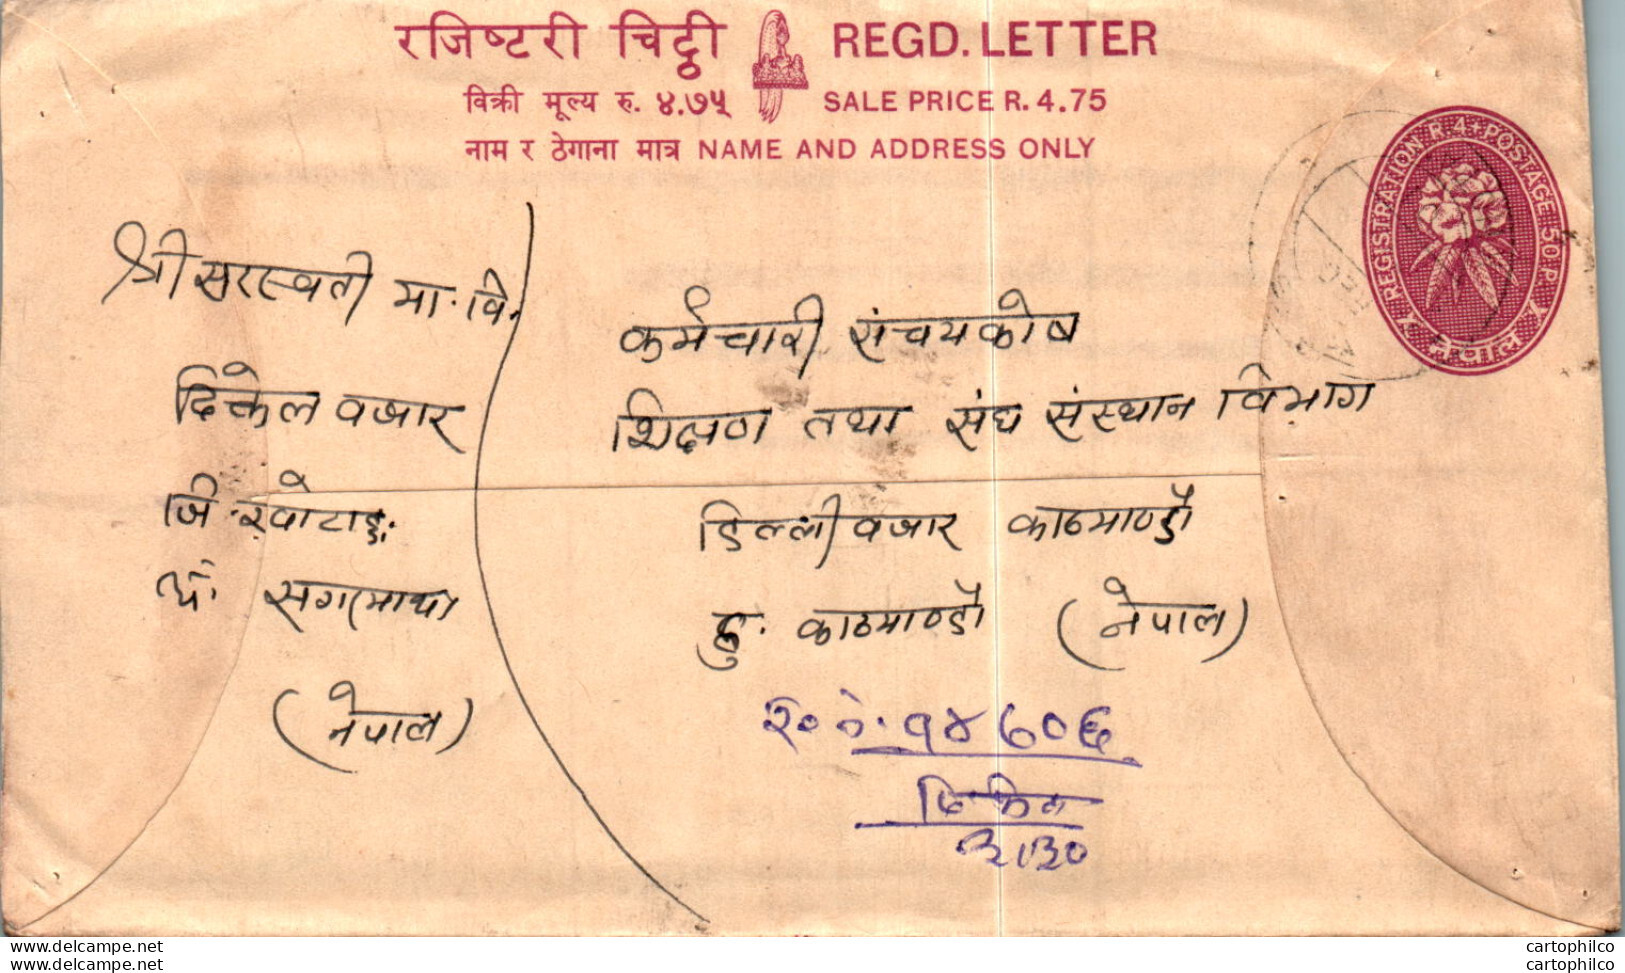 रजिष्टरी चिट्ठी REGD. LETTER
विक्री मूल्य रु. ४.७५ SALE PRICE R. 4.75
नाम र ठेगाना मात्र NAME AND ADDRESS ONLY
REGISTRATION R. 4 POSTAGE 50 P.
नेपाल
श्री सरस्वती मा.वि.
दिक्तेल वजार
जि. खोटाङ्ग
सगरमाथा
(नेपाल)
कर्मचारी संचयकोष
शिक्षण तथा संघ संस्थान विभाग
डिल्लीवजार काठमाण्डौ
हु. काठमाण्डौ (नेपाल)
र.नं. १४६०६
दिक्तेल
www.delcampe.net
www.delcampe.net
cartophilco
cartophilco